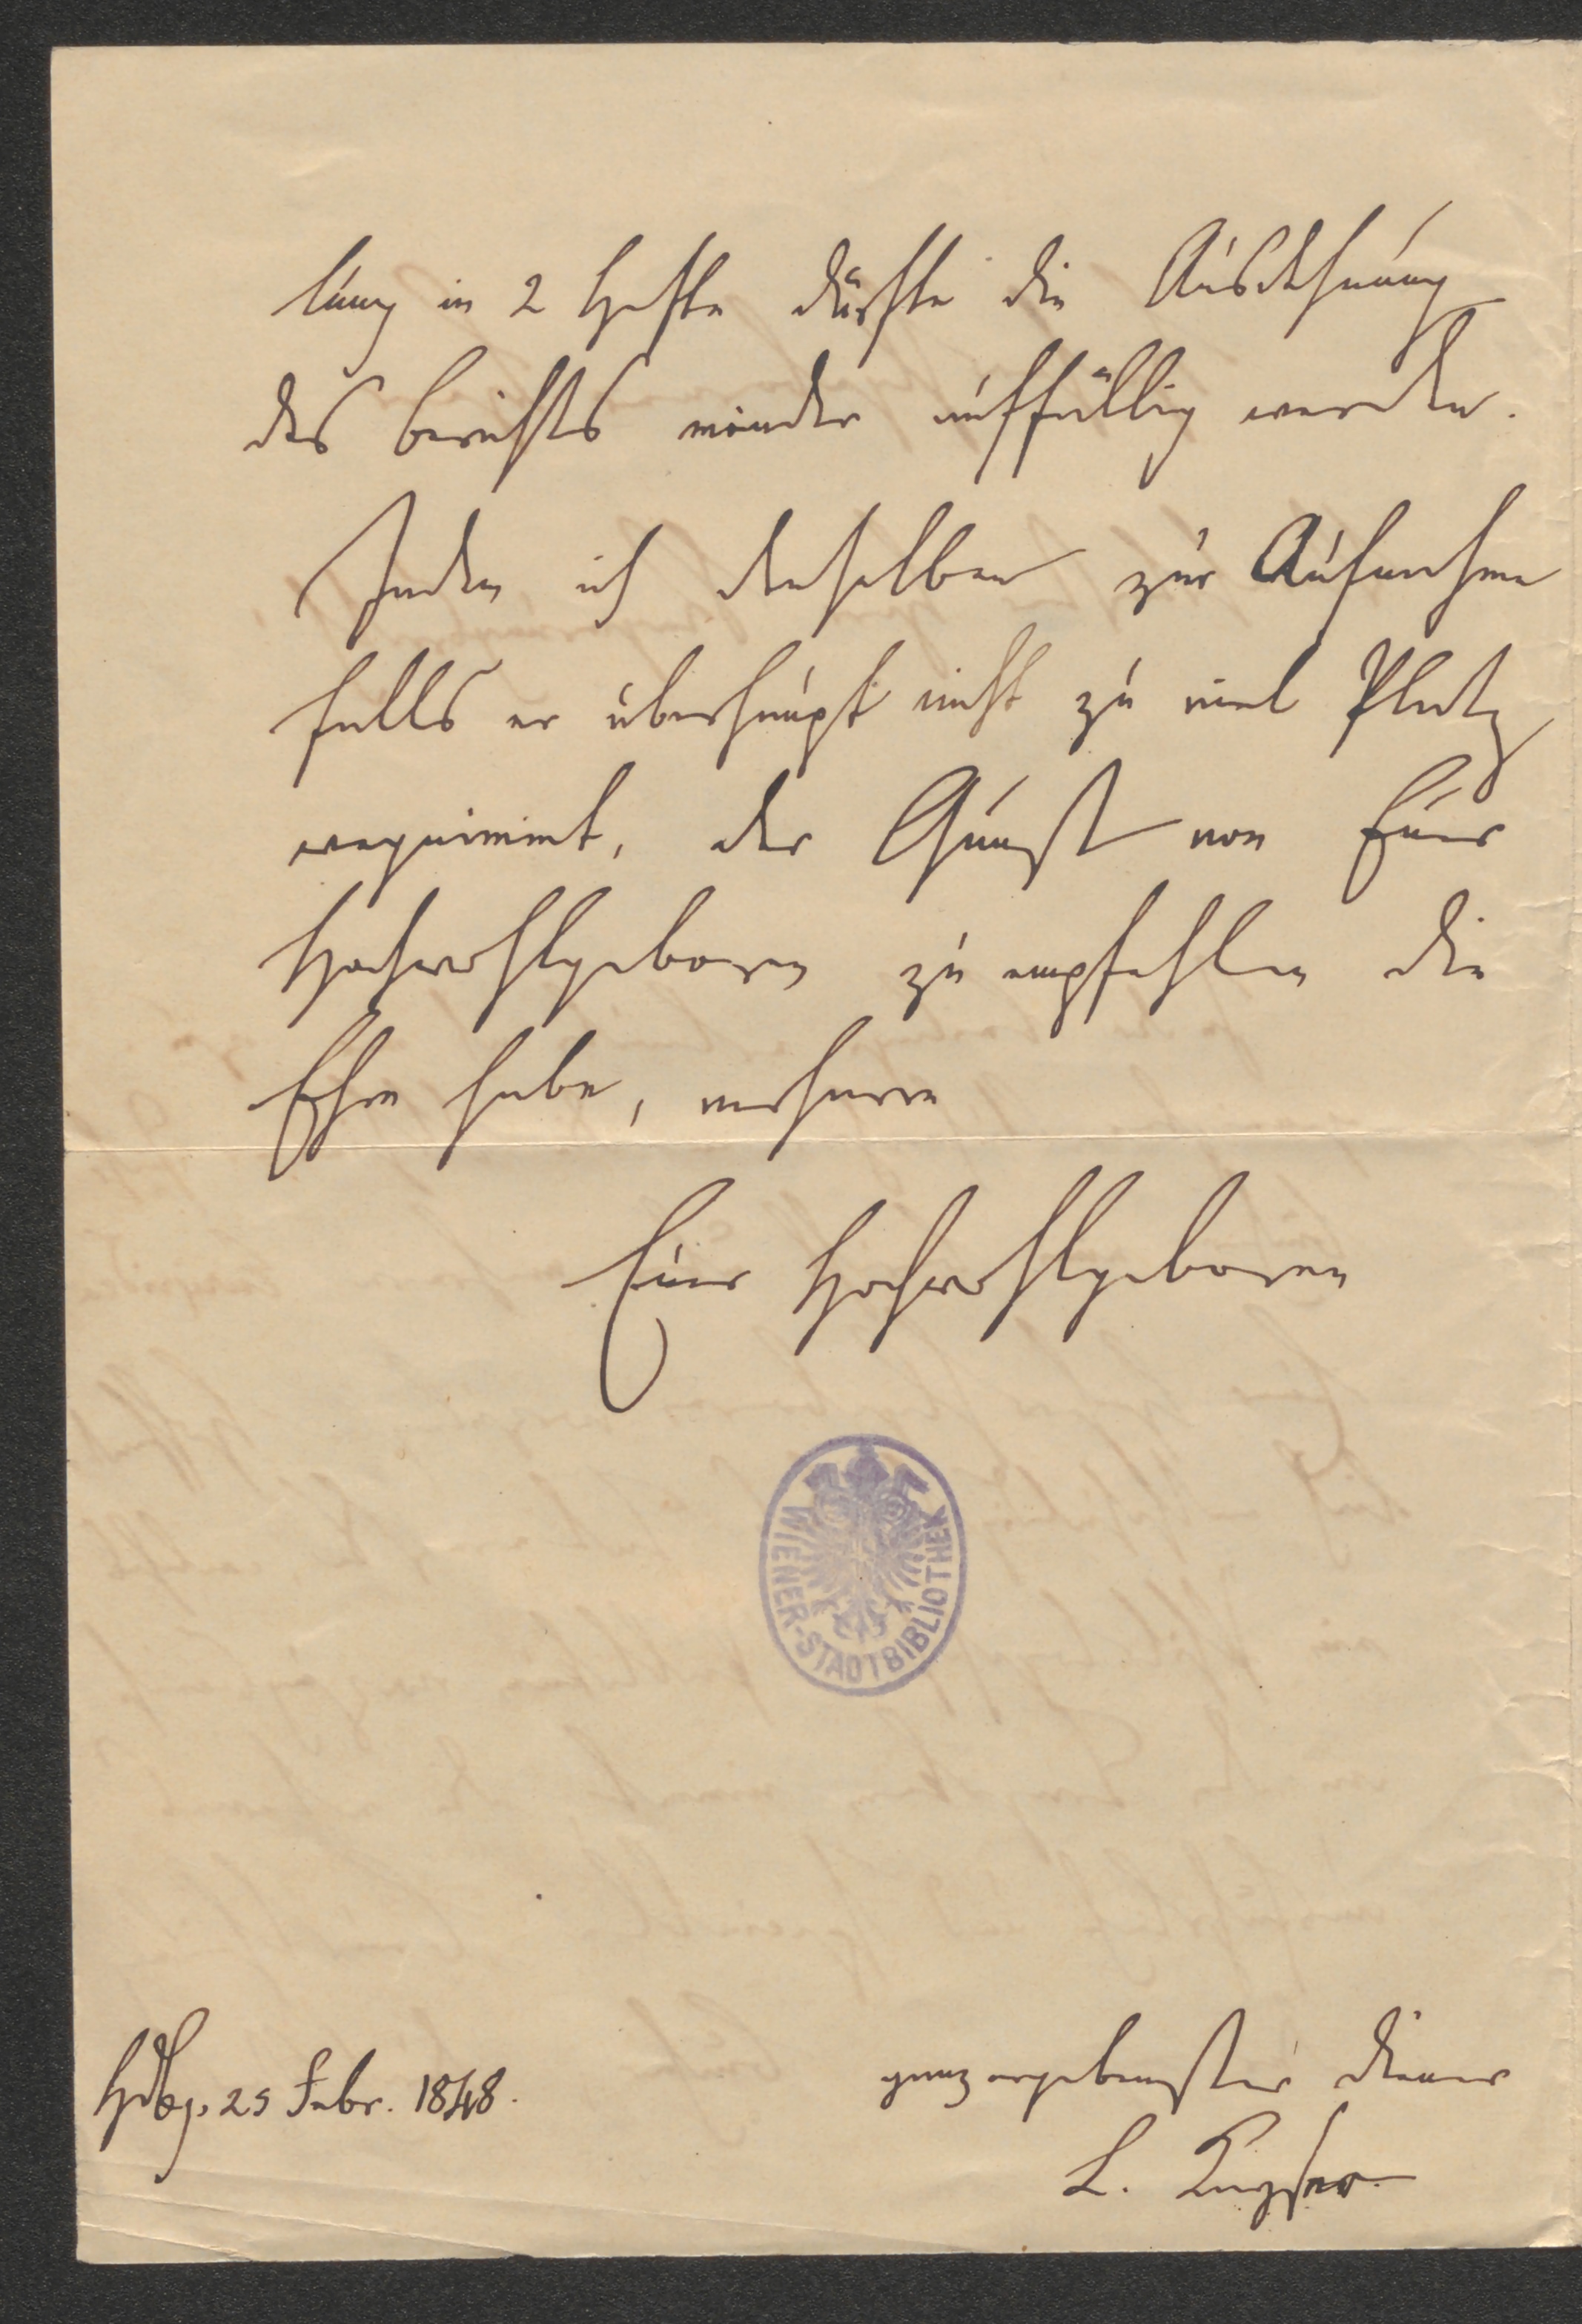 lung in 2 Hefte dürfte die Ausdehnung
des Berichts minder auffällig werden.
Indem ich denselben zur Aufnahme
falls er überhaupt nicht zu viel Platz
wegnimmt, der Gunst von Euer
Hochwohlgeboren zu empfehlen die
Ehre habe, verharre
Euer Hochwohlgeboren
WIENER-STADTBIBLIOTHEK
ganz ergebenster Diener
Hdbg. 25 Febr. 1848.
L.